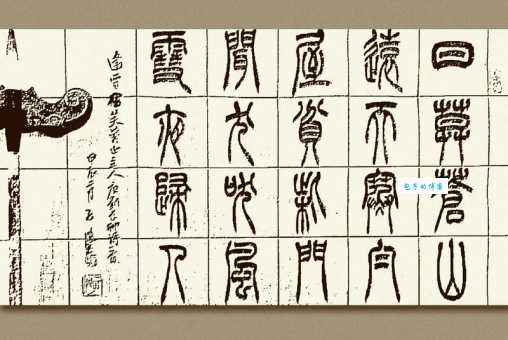 日暮蒼山
遠天寒白
屋貧柴門
聞犬吠風
雪夜歸人
逢雪宿芙蓉山主人唐劉長卿詩
甲辰
的博客